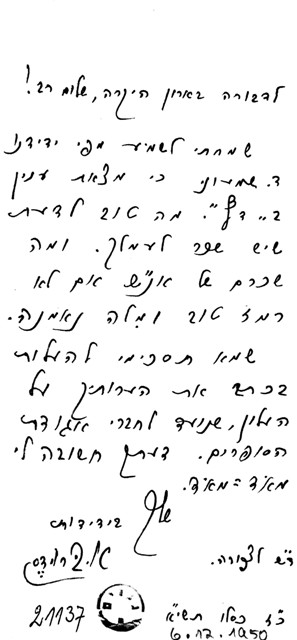 לדבורה בארון היקרה, שלום רב!
שמחתי לשמוע מפי ידידנו
ד. שמעוני כי מצאת ענין
ב„דף". מה טוב לדעת
שיש שכר לעמלך. ומה
שכרם של אנ"ש אם לא
רמז טוב ומלה נאמנה.
שמא תסכימי להעלות
בכתב את הערותיך על
העלון, שנועד לחברי אגודת
הסופרים. דעתך חשובה לי
מאד=מאד.
שלך
בידידות
ד"ש לצפורה.
כ"ז כסלו תשי"א
6.12.1950
21137